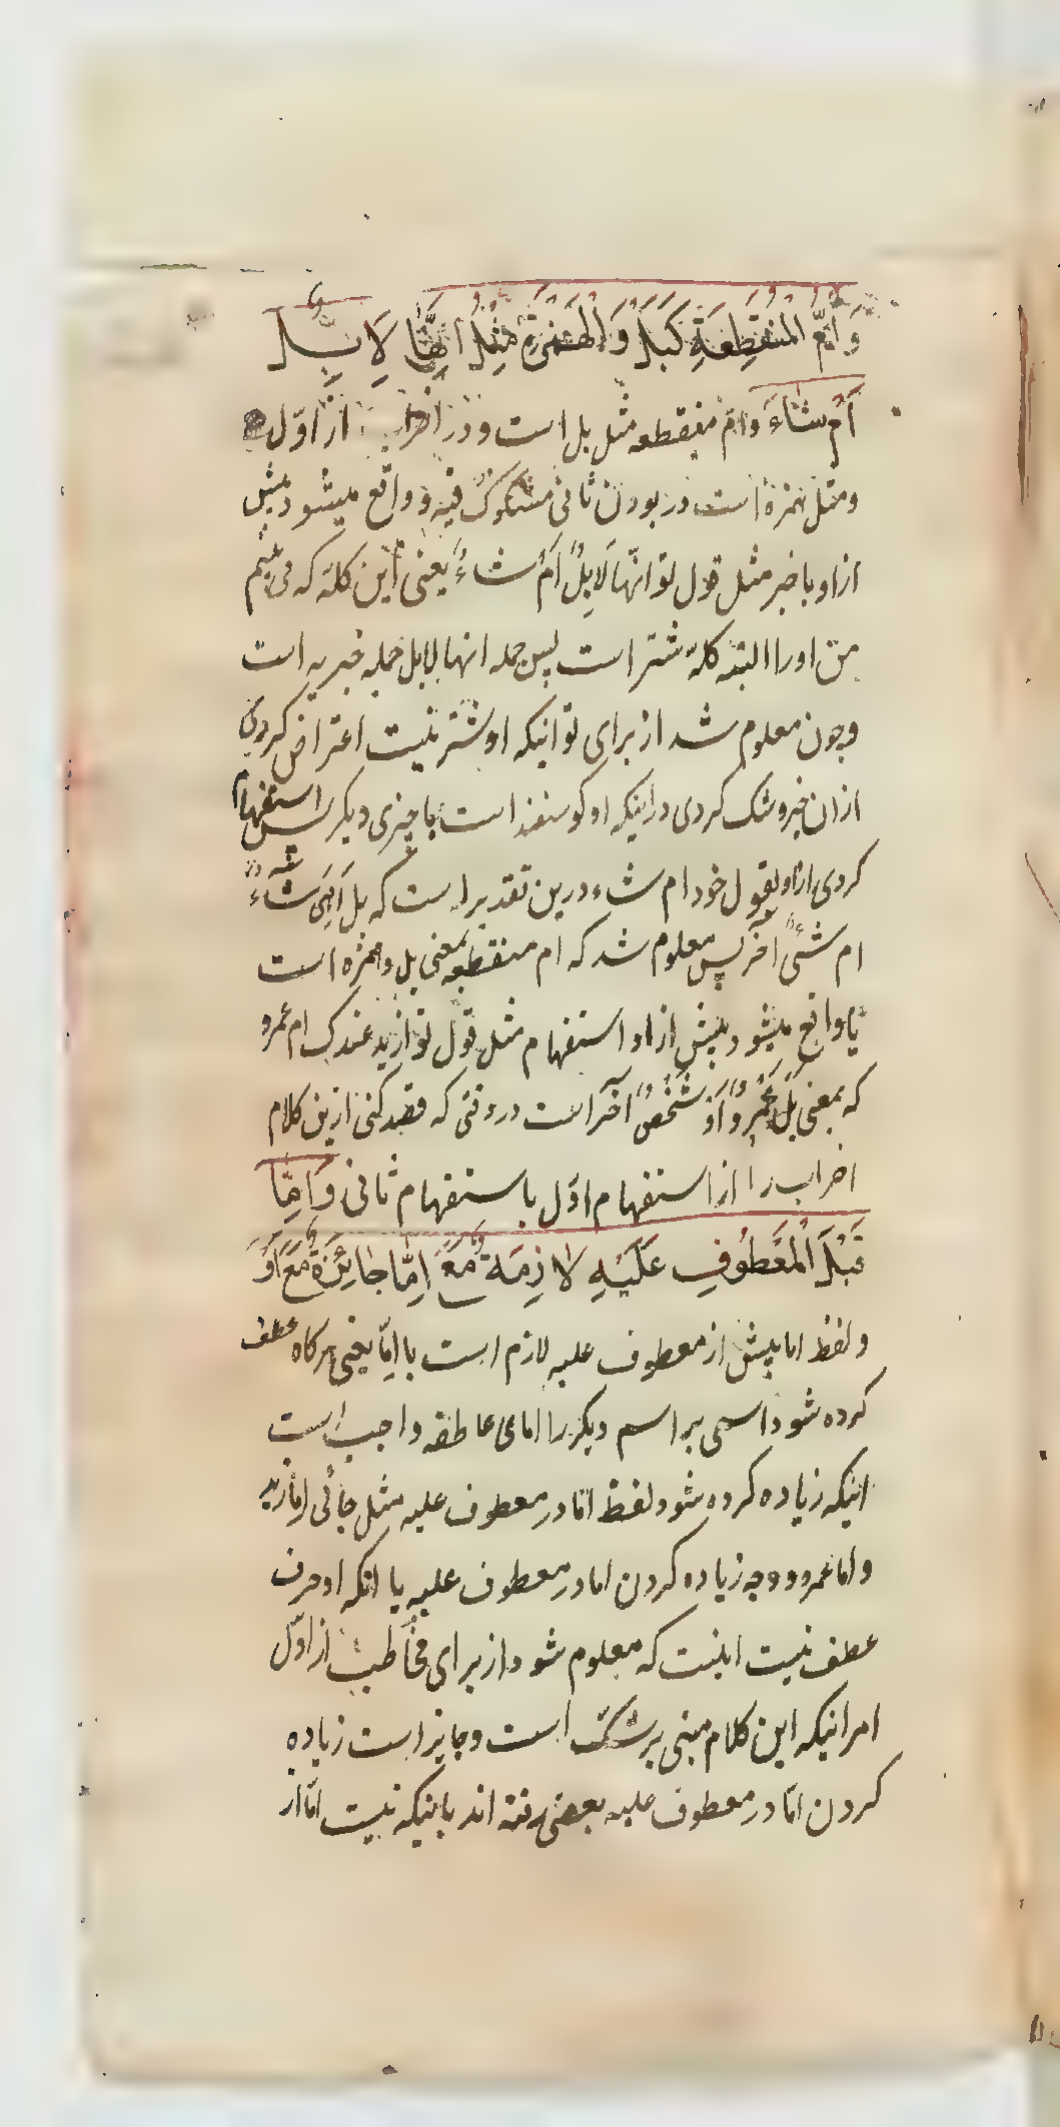 وَاَمُّ الْمُنْقَطِعَةِ كَبَلْ وَالْهَمْزَةِ مِثْلُ اِنَّهَا لَاِبِلٌ
اَمْ شَاءَ وام منقطعه مثل بل است و در اضراب از اوّل
و مثل همزهٔ است در بودن ثانی مشکوک فیه و واقع میشود پیش
ازاو یا خبر مثل قول تو انّها لَاِبِلٌ اَمْ شاءٌ یعنی این کلهٔ که می بینم
من اورا البته کلهٔ شتر است پس جمله انها لابل جمله خبریه است
و چون معلوم شد از برای تو اینکه او شتر نیست اعتراض کردی
ازان خبر و شک کردی در اینکه او کوسفند است یا چیزی دیکر پس استفهام
کردی ازاو بقول خود ام شاء درین تقدیر است که بل اَهِیَ شاءٌ
ام شیٌ آخر پس معلوم شد که ام منقطعه بمعنی بل و همزه است
یا واقع میشود پیش ازاو استفهام مثل قول تو ازید عندک ام عمرو
که بمعنی بَلْ عَمْرٌو اَوْ شَخْصٌ آخر است در وقتی که قصد کنی ازین کلام
اضراب را از استفهام اوّل باستفهام ثانی وَاِمّا
قَبْلَ الْمَعْطُوفِ عَلَیْهِ لازِمَةٌ مَعَ اِمّا جائِزَةٌ مَعَ اَوْ
و لفظ اما پیش از معطوف علیه لازم است با اِمّا یعنی هرکاه عطف
کرده شود اسمی بر اسم دیکر را امای عاطفه واجب است
اینکه زیاده کرده شود لفظ امّا در معطوف علیه مثل جائی امّا زید
و اما عمرو و وجه زیاده کردن اما در معطوف علیه با انکه او حرف
عطف نیست اینست که معلوم شود از برای مخاطب از اوّل
امر اینکه این کلام مبنی بر شک است و جایز است زیاده
کردن امّا در معطوف علیه بعضی رفته اند باینکه نیست امّا از